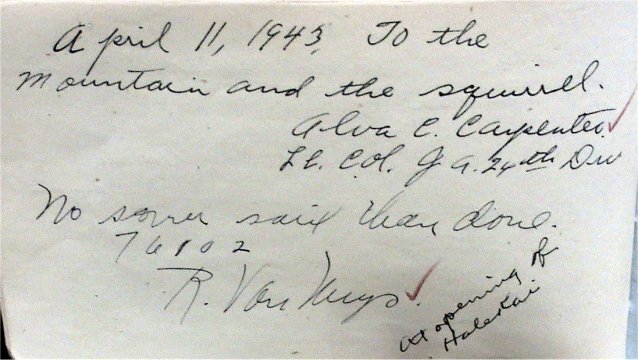 April 11, 1943, To the
mountain and the squirrel.
Alva C. Carpenter
Lt. Col. J a. 24th Div
No sooner said than done.
76102
R. Van Nuys.
at opening of
Halekai